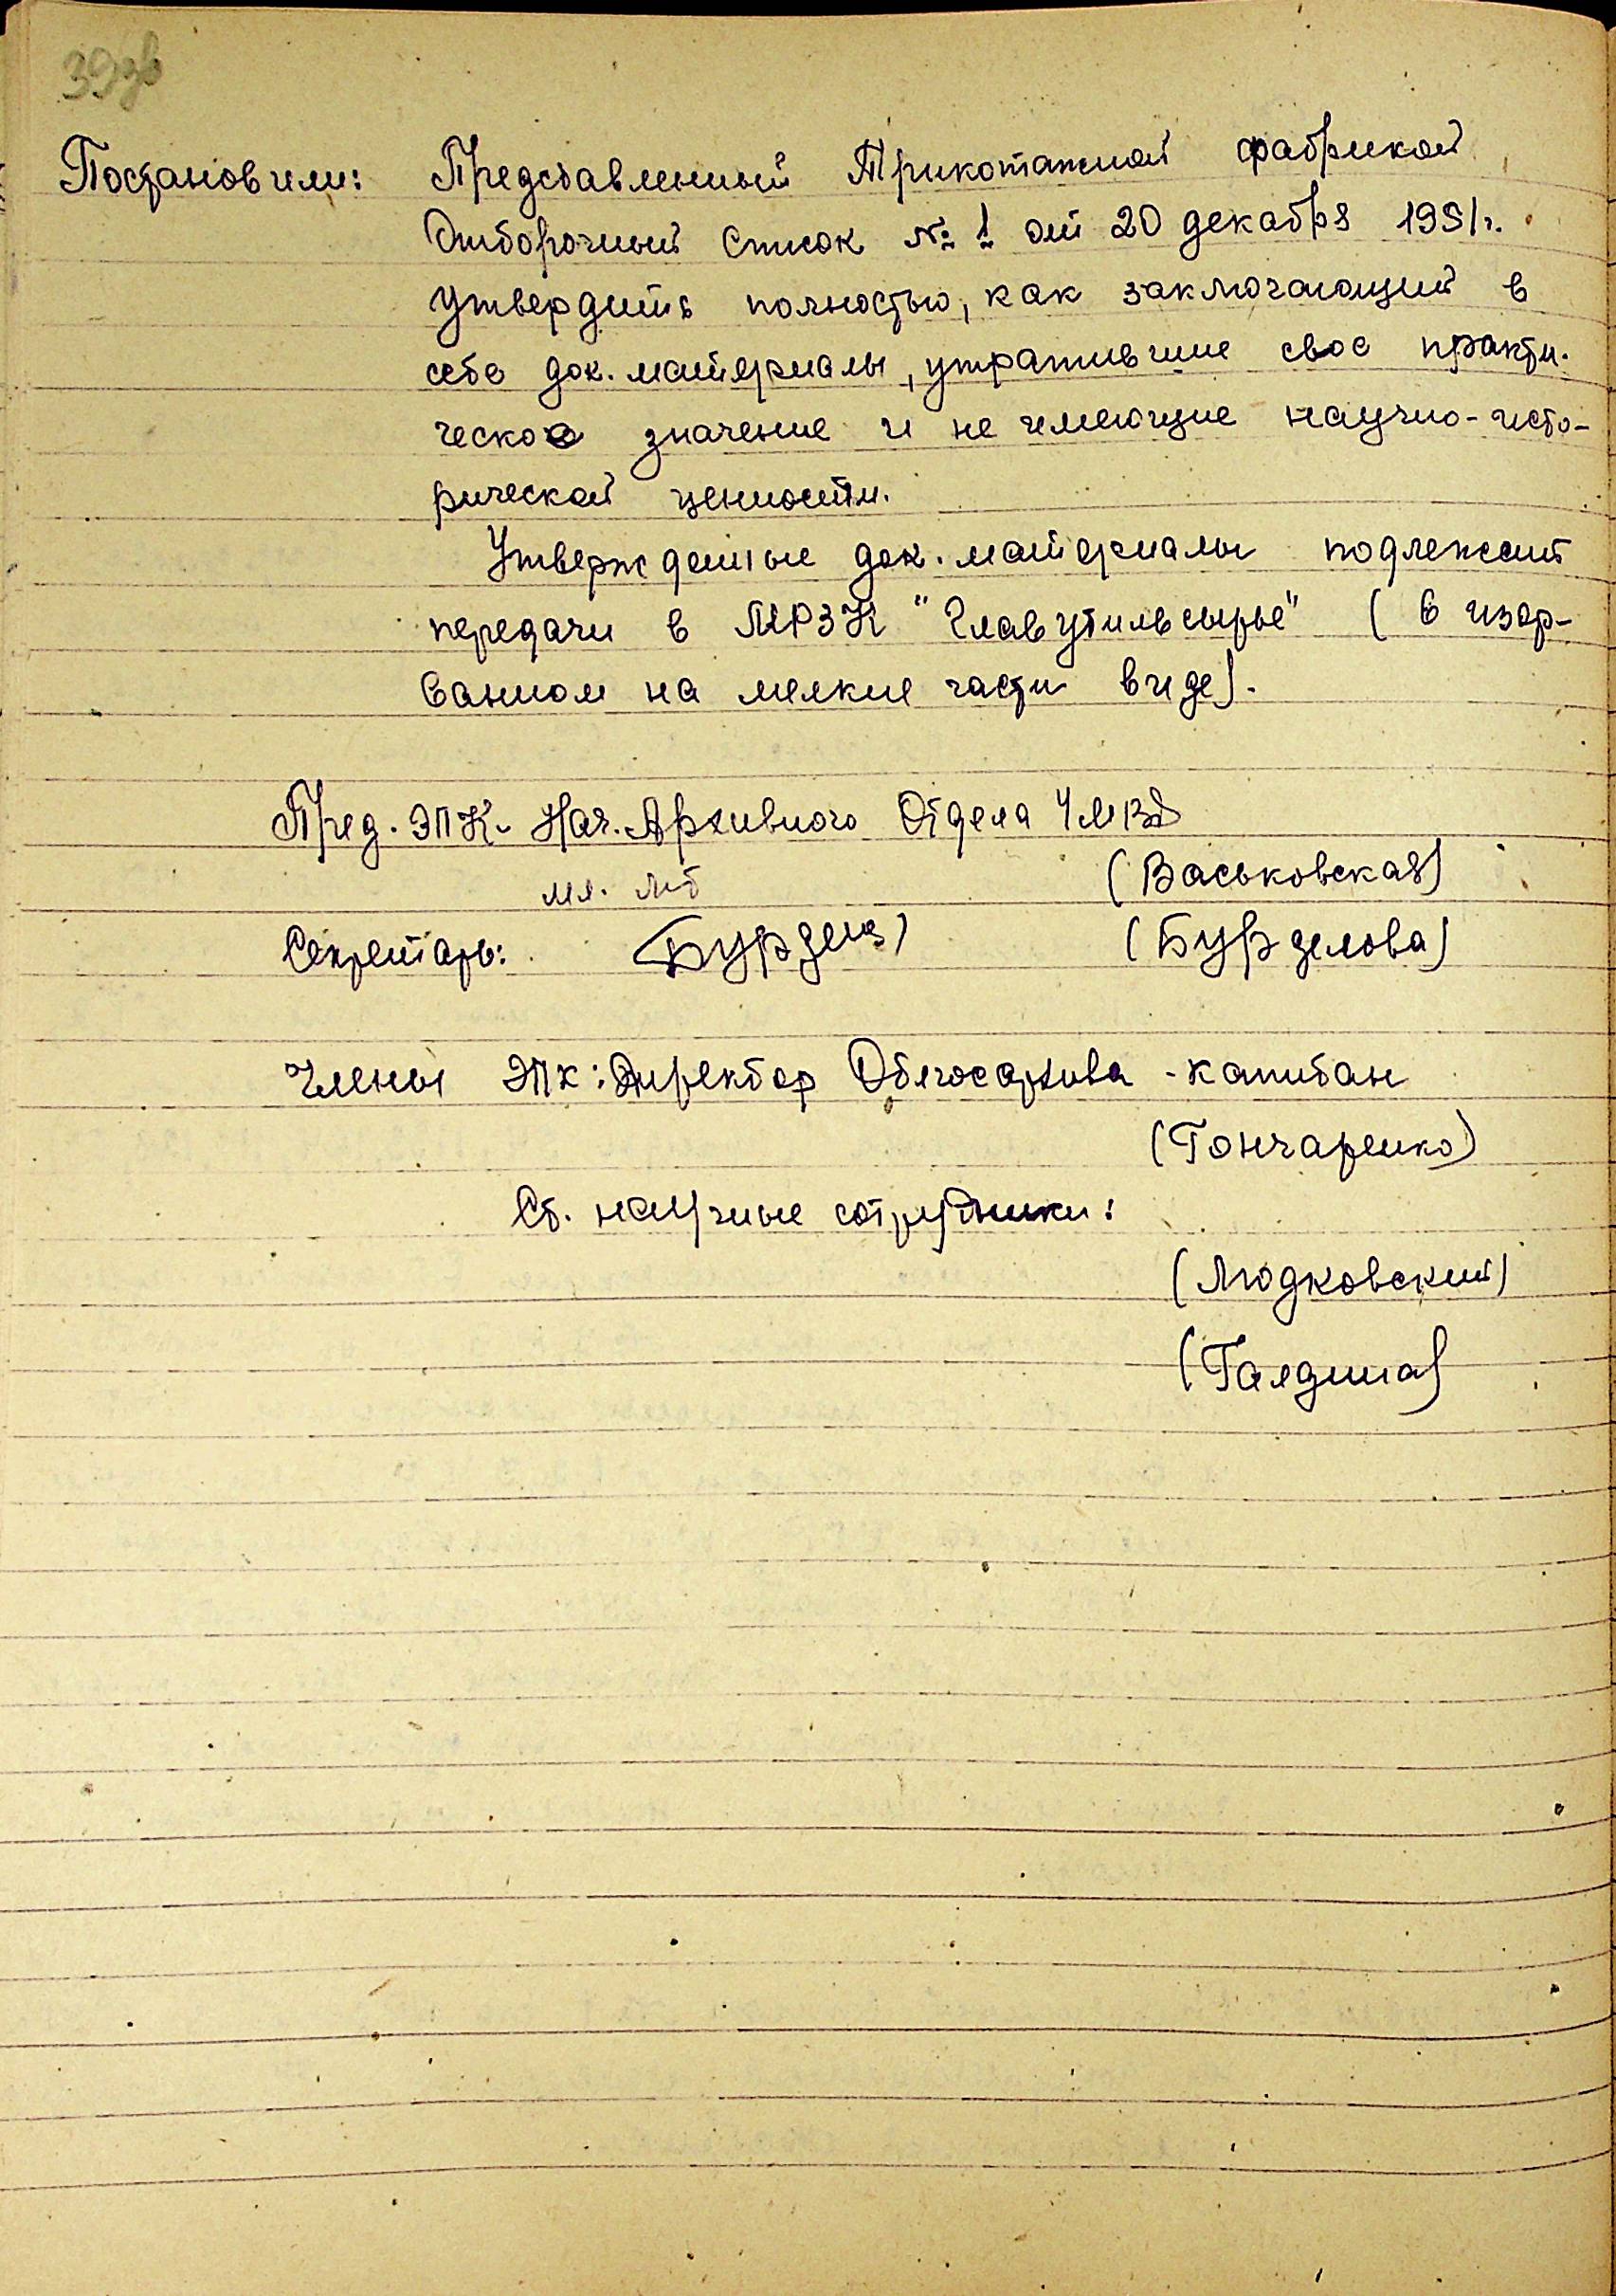 39зв
Постановили: Представленный Трикотажной фабрикой
Отборочный список № 1 от 20 декабря 1951г.
утвердить полностью, как заключающий в
себе док. материалы, утратившие свое практи-
ческое значение и не имеющие научно-исто-
рической ценности.
Утвержденные док. материалы подлежат
передачи в МРЗК "Главутильсырье" ( в изор-
ванном на мелкие части виде).
Пред. ЭПК - Нач. Архивного Отдела УМВД
мл. л-т (Васьковская)
Секретарь: (Бурделова)
Члены ЭПК: Директор Облгосархива - капитан
(Гончаренко)
Ст. научные сотрудники:
(Людковский)
(Галдина)